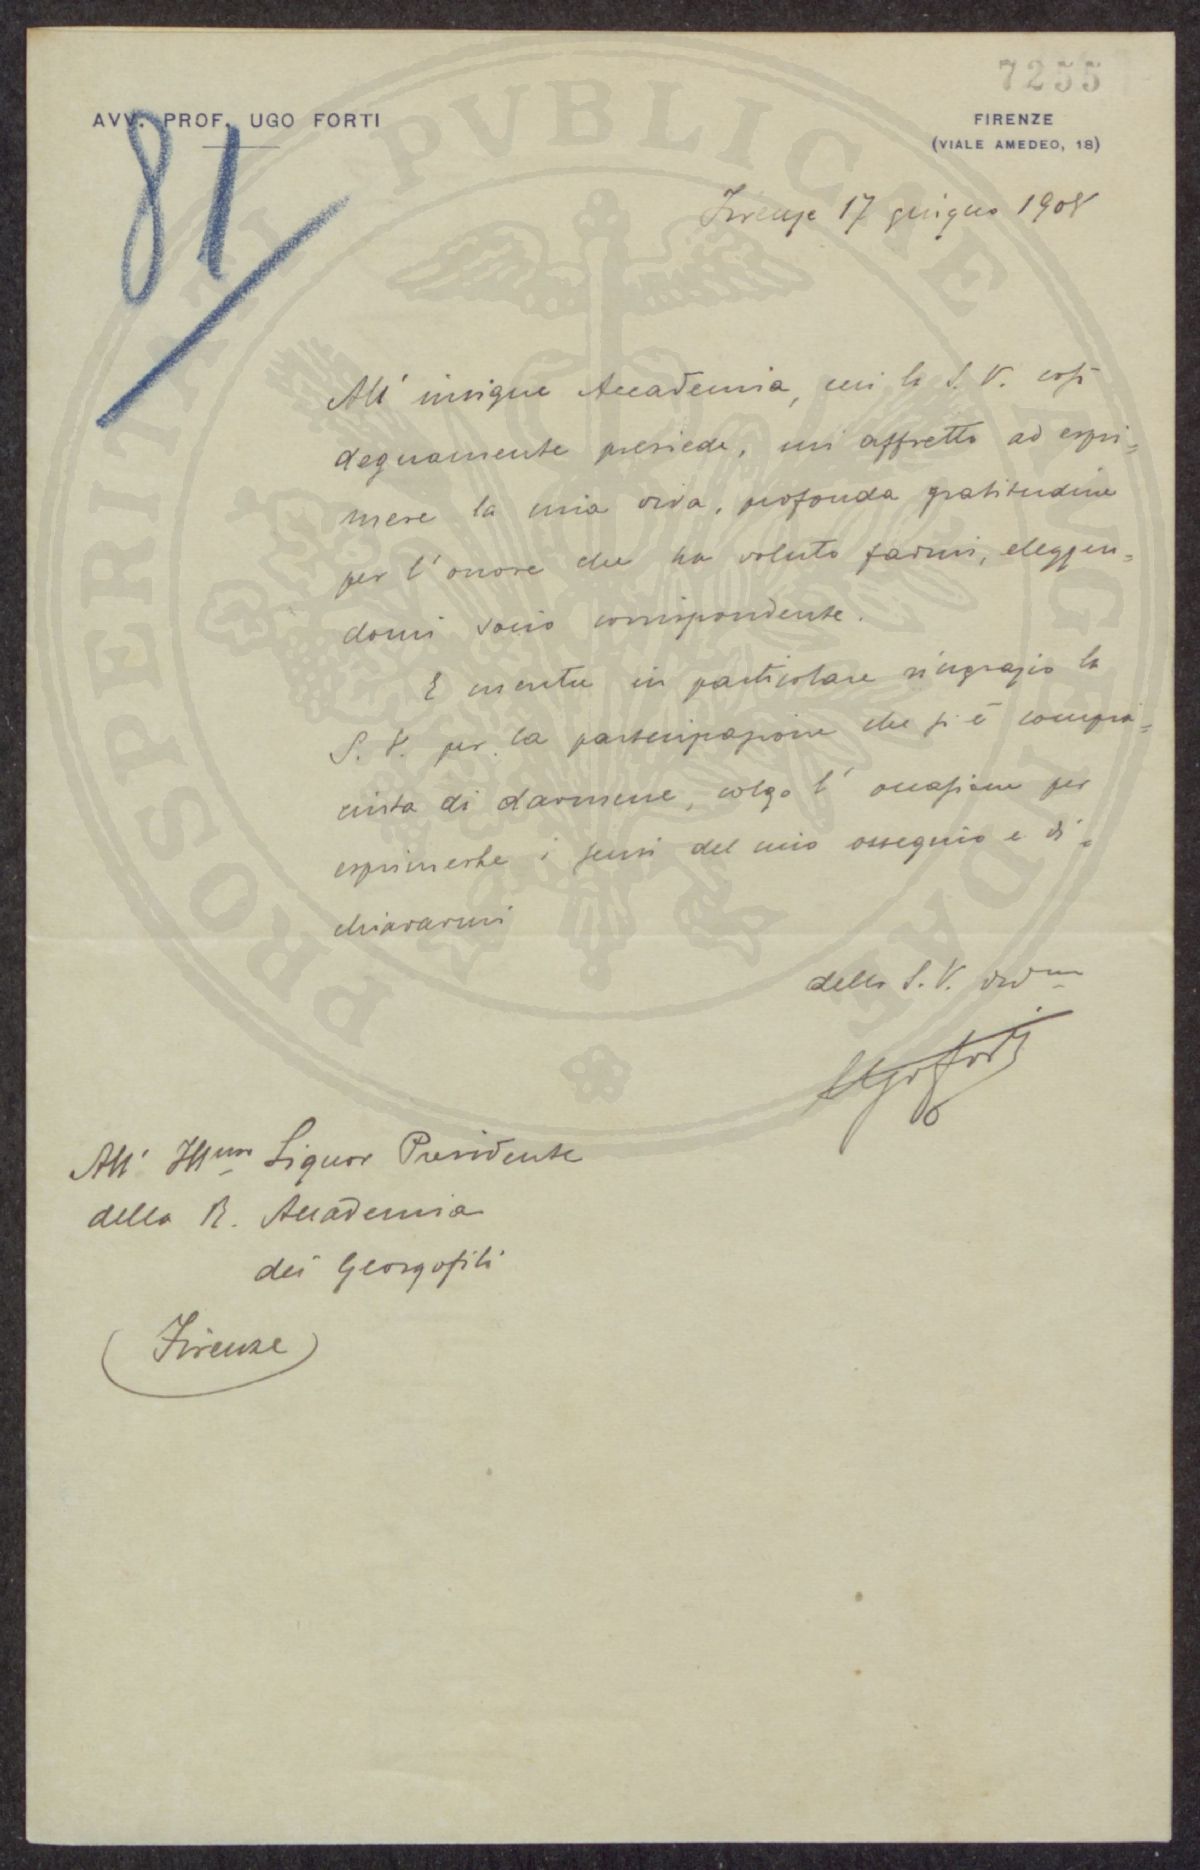 7255
AVV. PROF. UGO FORTI
FIRENZE
(VIALE AMEDEO, 18)
81
Firenze 17 giugno 1908
All' insigne Accademia, cui la S. V. così
degnamente presiede, mi affretto ad espri=
mere la mia viva, profonda gratitudine
per l'onore che ha voluto farmi, eleggen=
domi socio corrispondente.
E mentre in particolare ringrazio la
S. V. per la partecipazione che si è compia=
ciuta di darmene, colgo l' occasione per
esprimerle i sensi del mio ossequio e di=
chiararmi
della S. V. dev.ma
Ugo Forti
All' Ill.mo Signor Presidente
della R. Accademia
dei Georgofili
(Firenze)
PROSPERITATI PVBLICAE AVGENDAE